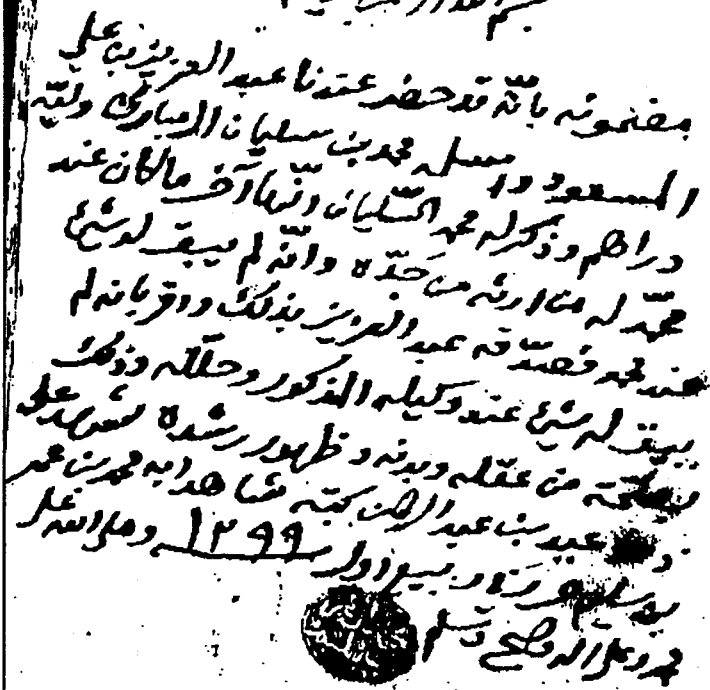 بسم الله
مضمونه بانه قد حضر عندنا عبد العزيز بن علي
المسعود وارسله محمد بن سليمان المبارك وفيه
دراهم وذكر له محمد السليمان انها آخر ما كان عند
محمد له من ارثه من جده وانه لم يبق له شيء
عند محمد فصدقه عبد العزيز بذلك واقر بانه لم
يبق له شيء عند وكيله المذكور وحلله وذلك
بصحة من عقله وبدنه وظهور رشده شهد على
ذلك عبيد بن عبد الرحمن كتبه شاهدا به محمد بن عمر
بن سليم حرر في ربيع اول ١٢٩٩ وصلى الله على
محمد وعلى اله وصحبه وسلم